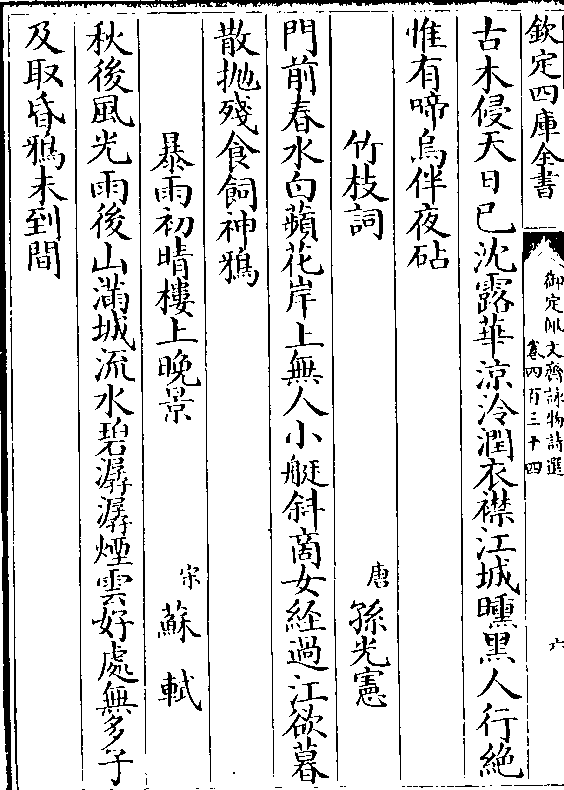 欽定四庫全書
御定佩文齋詠物詩選
卷四百三十四
六
古木侵天日已沈露華涼冷潤衣襟江城曛黑人行絶
惟有啼烏伴夜砧
竹枝詞
唐 孫光憲
門前春水白蘋花岸上無人小艇斜商女經過江欲暮
散抛殘食飼神鴉
暴雨初晴樓上晚景
宋 蘇軾
秋後風光雨後山滿城流水碧潺潺煙雲好處無多子
及取昏鴉未到間